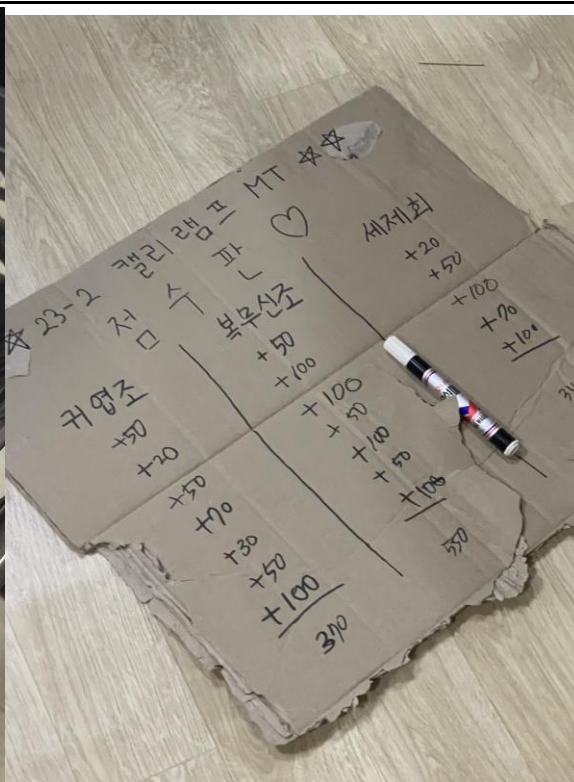 ☆ 23-2 캘리램프 MT ☆☆
점수판 ♡
귀엽조
+50
+20
+50
+70
+30
+50
+100
370
복무신조
+50
+100
+100
+50
+100
+50
+100
550
세제회
+20
+50
+100
+70
+100